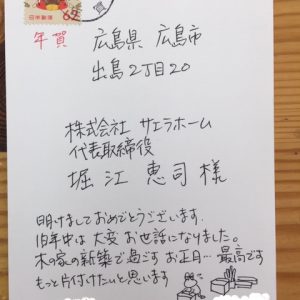 日本郵便
62
年賀
広島県 広島市
出島2丁目20
株式会社 サエラホーム
代表取締役
堀江 恵司 様
明けましておめでとうございます.
旧年中は 大変 お世話になりました。
木の家の新築で過ごす お正月… 最高です
もっと片付けたいと思います